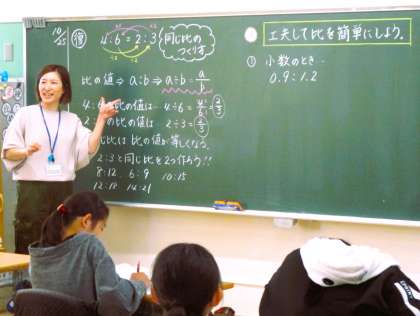 10/25
復 4:6=2:3
÷2
÷2
同じ比の
つくり方
比の値⇒a:b⇒a÷b=a/b
4:6の比の値は…4÷6=4/6=2/3
の比の値は 2÷3=2/3
比は 比の値が等しくなる。
2:3と同じ比を2つ作ろう!!
8:12、6:9 10:15
12:18 14:21
工夫して比を簡単にしよう。
① 小数のとき…
0.9:1.2